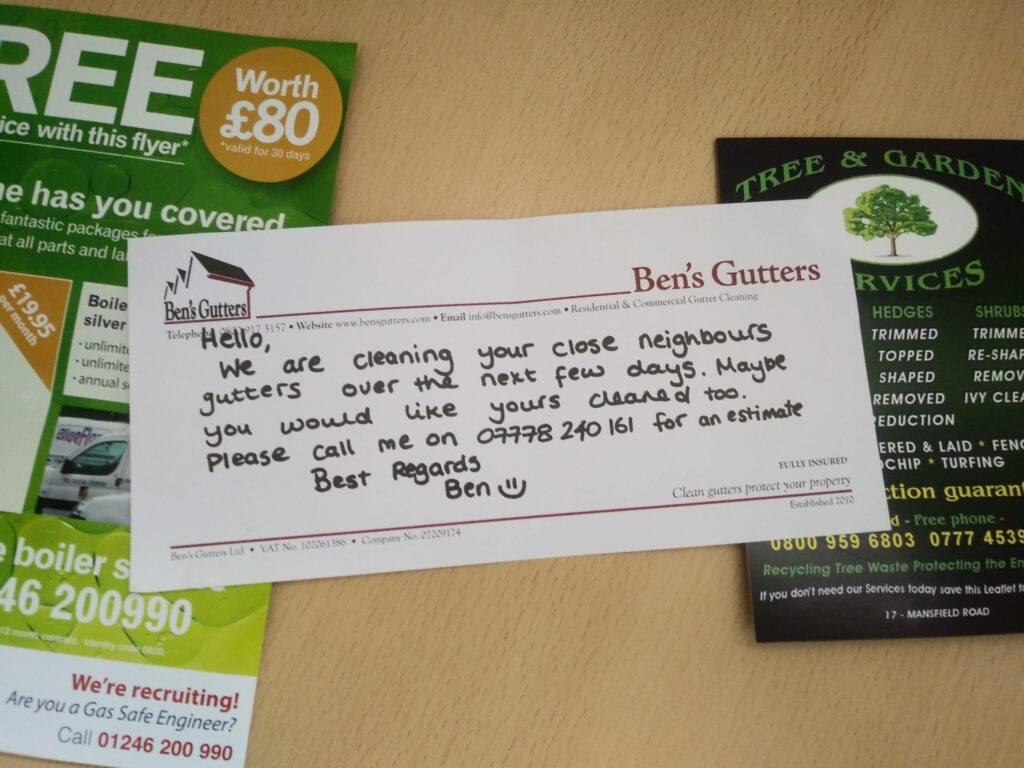 REE
ice with this flyer*
Worth
£80
*valid for 30 days
e has you covered
fantastic packages
at all parts and la
£19.95
per month
Boile
silver
· unlimite
· unlimite
· annual s
boiler s
46 200990
12 month contract. Identity code
We're recruiting!
Are you a Gas Safe Engineer?
Call 01246 200 990
Ben's Gutters
Ben's Gutters
3157 • Website www.bensgutters.com • Email info@bensgutters.com • Residential & Commercial Gutter Cleaning
Hello,
We are cleaning your close neighbours
gutters over the next few days. Maybe
you would like yours cleaned too.
Please call me on 07778 240 161 for an estimate
Best Regards
Ben
FULLY INSURED
Clean gutters protect your property
Established 2010
Ben's Gutters Ltd • VAT No. 102061386 • Company No. 07209174
TREE & GARDEN
RVICES
HEDGES SHRUBS
TRIMMED TRIMME
TOPPED RE-SHAP
SHAPED REMOV
REMOVED IVY CLEA
EDUCTION
ERED & LAID * FENC
CHIP * TURFING
ction guarant
d - Free phone -
0800 959 6803 0777 4539
Recycling Tree Waste Protecting the En
If you don't need our Services today save this Leaflet fo
17 - MANSFIELD ROAD